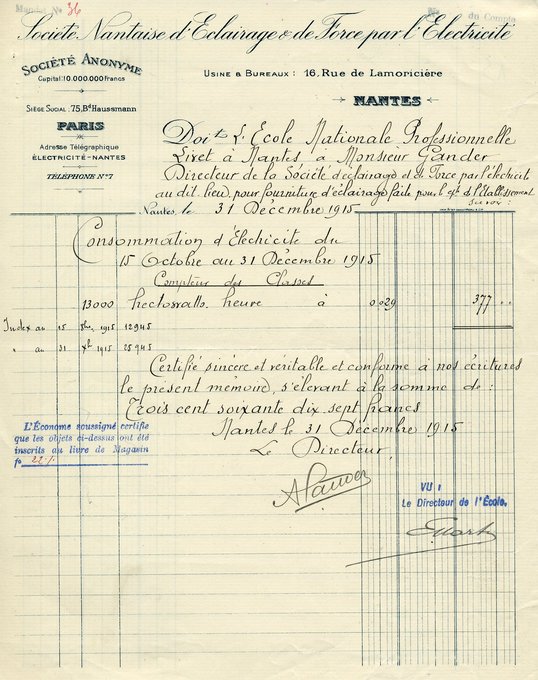 Mandat No 36
No du Compte
Société Nantaise d'Eclairage & de Force par l'Electricité
SOCIÉTÉ ANONYME
Capital: 10.000.000 Francs
USINE & BUREAUX : 16, Rue de Lamoricière
SIÈGE SOCIAL : 75, Bd Haussmann
NANTES
PARIS
Adresse Télégraphique
ÉLECTRICITÉ-NANTES
TÉLÉPHONE No 7
Doit L'Ecole Nationale Professionnelle
Livet à Nantes à Monsieur Gander
Directeur de la Société d'éclairage et de Force par l'électricité
au dit lieu, pour fourniture d'éclairage faite pour l'expt. de l'Etablissement
Savoir :
Nantes, le 31 Décembre 1915
Consommation d'Electricité du
15 Octobre au 31 Décembre 1915
Compteur des Classes
13000 hectowatts heure à 0.029 377 "
Index au 15 8bre 1915 12945
" au 31 Xbre 1915 25945
Certifié sincère et véritable et conforme à nos écritures
le présent mémoire, s'élevant à la somme de :
Trois cent soixante dix sept francs
Nantes le 31 Décembre 1915
Le Directeur
L'Économe soussigné certifie
que les objets ci-dessus ont été
inscrits au livre de Magasin
fo 22
VU :
Le Directeur de l'École,